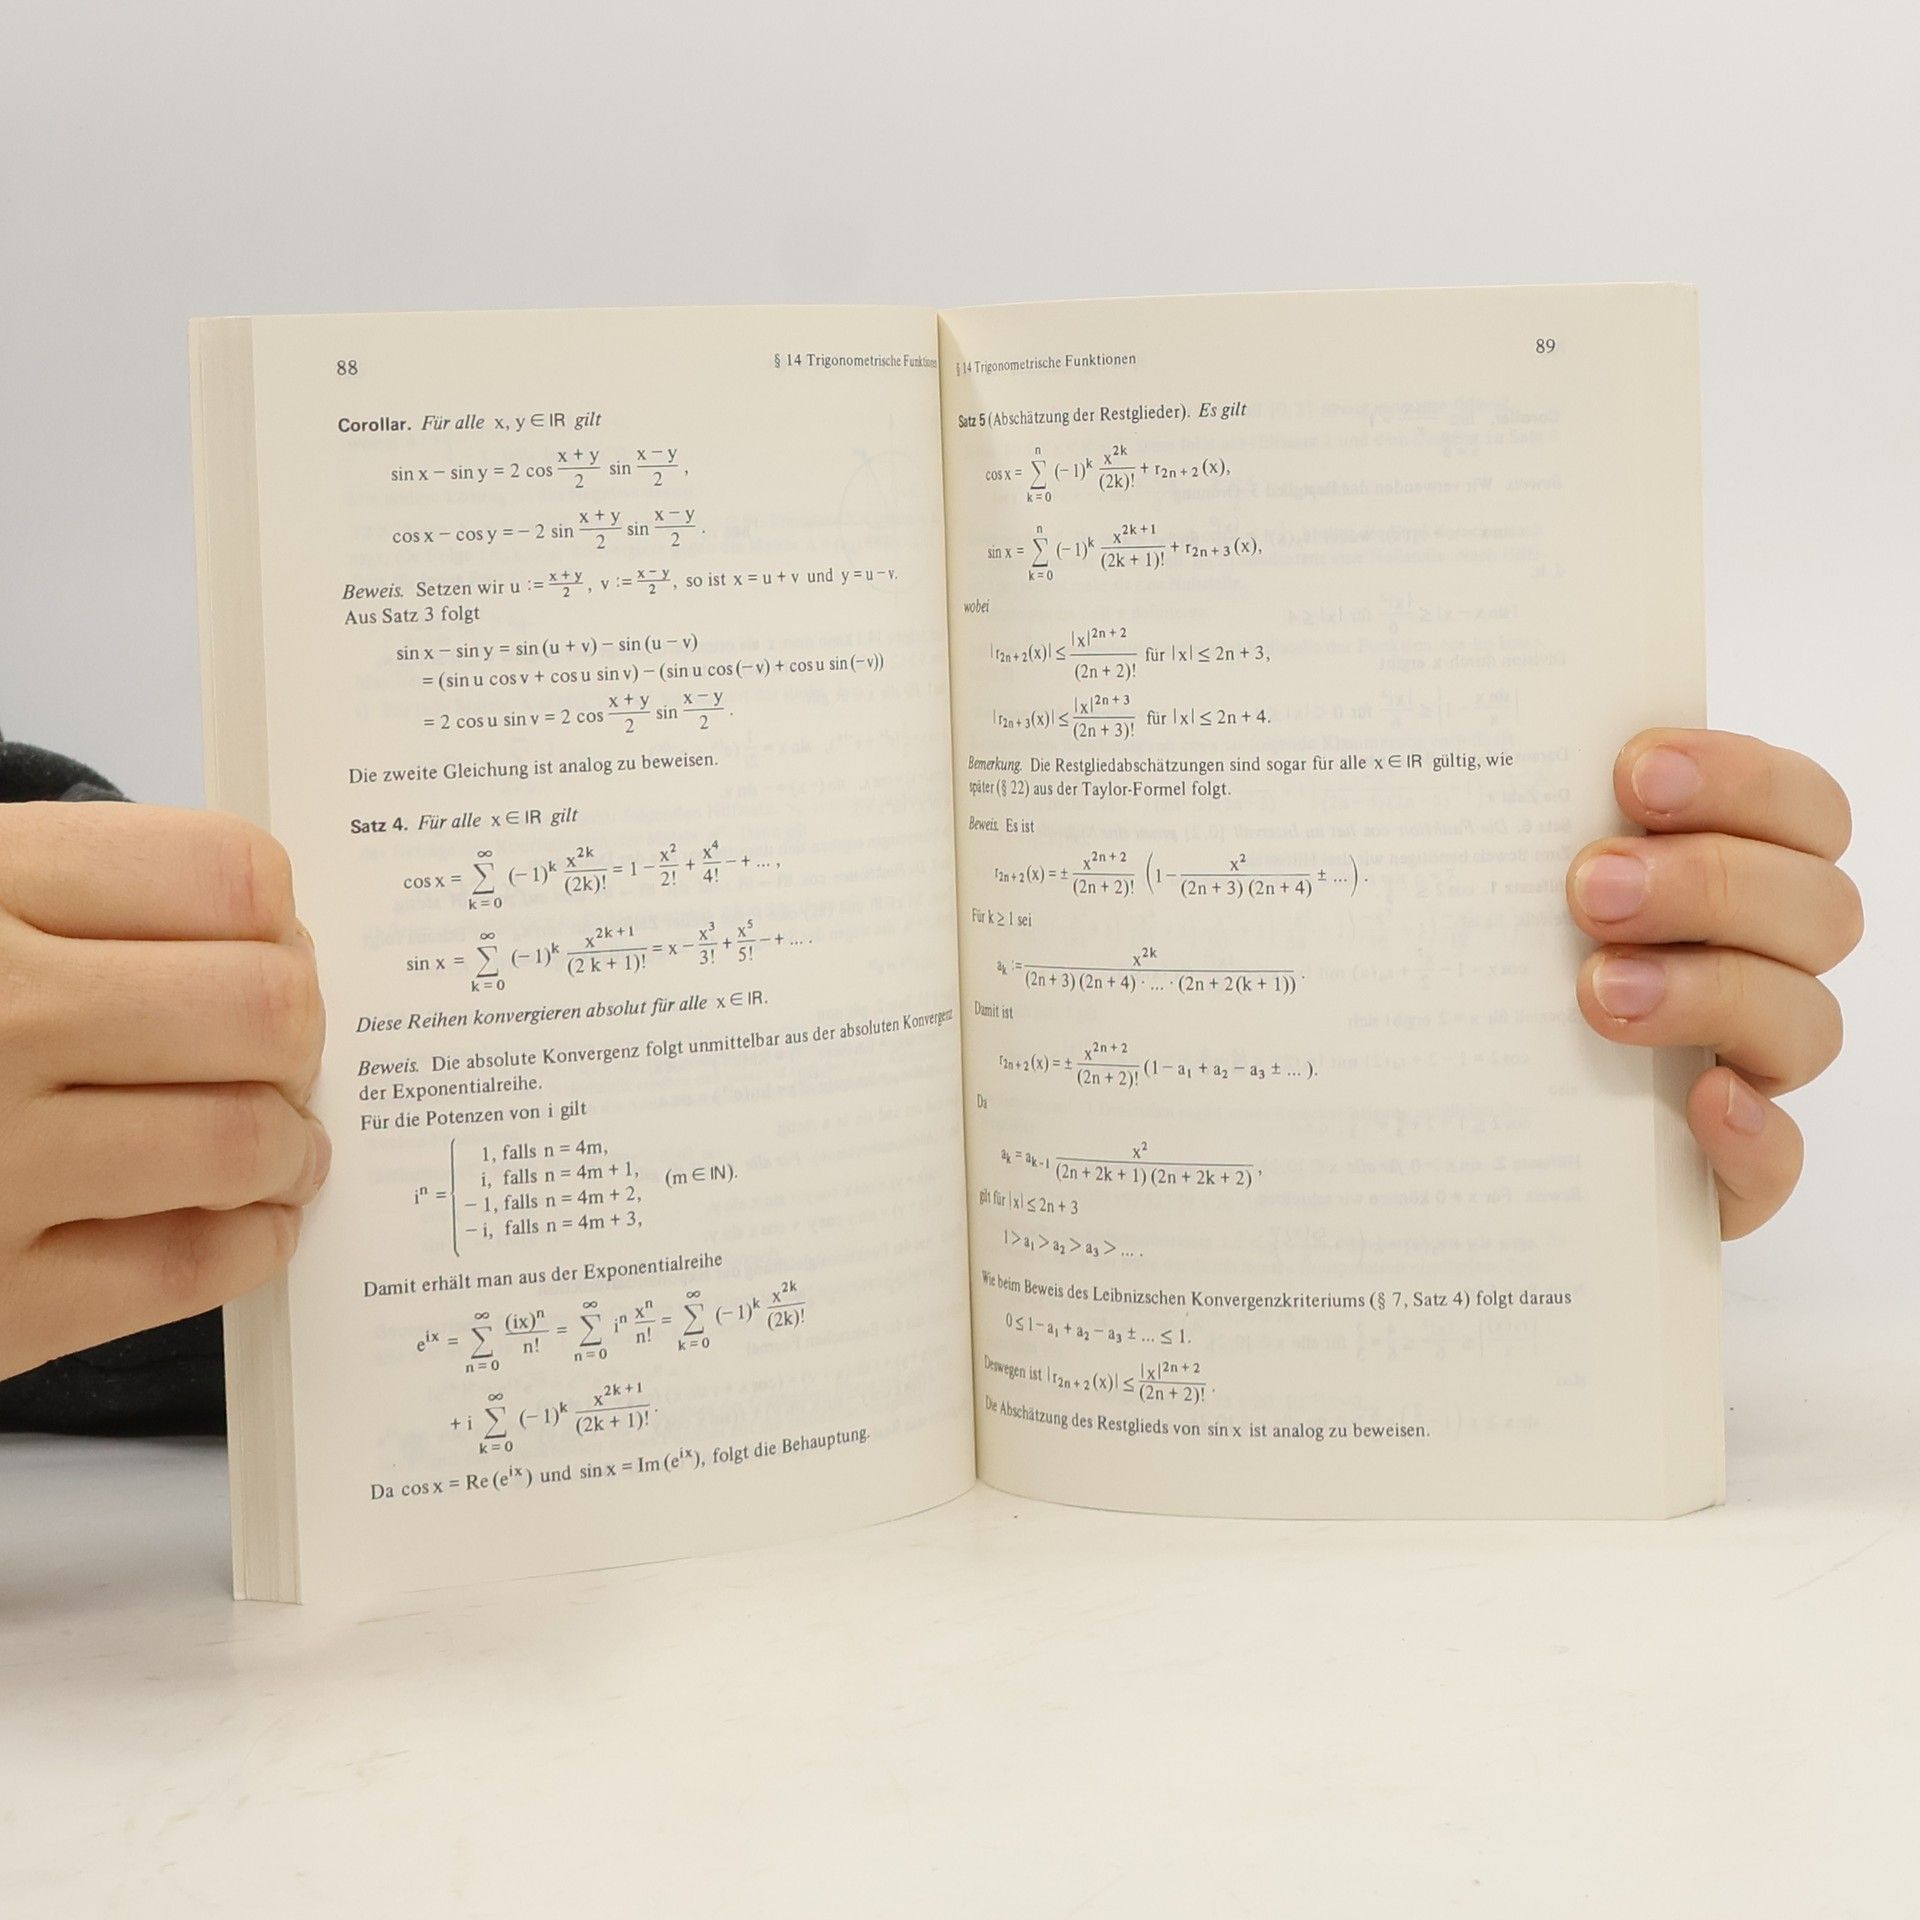 88
§ 14 Trigonometrische Funktionen
Corollar. Für alle x, y ∈ ℝ gilt
sin x − sin y = 2 cos (x + y)/2 sin (x − y)/2 ,
cos x − cos y = − 2 sin (x + y)/2 sin (x − y)/2 .
Beweis. Setzen wir u := (x + y)/2 , v := (x − y)/2 , so ist x = u + v und y = u − v.
Aus Satz 3 folgt
sin x − sin y = sin (u + v) − sin (u − v)
= (sin u cos v + cos u sin v) − (sin u cos (− v) + cos u sin (− v))
= 2 cos u sin v = 2 cos (x + y)/2 sin (x − y)/2 .
Die zweite Gleichung ist analog zu beweisen.
Satz 4. Für alle x ∈ ℝ gilt
cos x = ∑_{k=0}^{∞} (− 1)^k x^{2k}/(2k)! = 1 − x^2/2! + x^4/4! − + ... ,
sin x = ∑_{k=0}^{∞} (− 1)^k x^{2k+1}/(2 k + 1)! = x − x^3/3! + x^5/5! − + ... .
Diese Reihen konvergieren absolut für alle x ∈ ℝ.
Beweis. Die absolute Konvergenz folgt unmittelbar aus der absoluten Konvergenz
der Exponentialreihe.
Für die Potenzen von i gilt
i^n = { 1, falls n = 4m,
i, falls n = 4m + 1,
− 1, falls n = 4m + 2,
− i, falls n = 4m + 3,
(m ∈ ℕ).
Damit erhält man aus der Exponentialreihe
e^{ix} = ∑_{n=0}^{∞} (ix)^n/n! = ∑_{n=0}^{∞} i^n x^n/n! = ∑_{k=0}^{∞} (− 1)^k x^{2k}/(2k)!
+ i ∑_{k=0}^{∞} (− 1)^k x^{2k+1}/(2k + 1)! .
Da cos x = Re (e^{ix}) und sin x = Im (e^{ix}), folgt die Behauptung.
§ 14 Trigonometrische Funktionen
89
Satz 5 (Abschätzung der Restglieder). Es gilt
cos x = ∑_{k=0}^{n} (− 1)^k x^{2k}/(2k)! + r_{2n+2} (x),
sin x = ∑_{k=0}^{n} (− 1)^k x^{2k+1}/(2k + 1)! + r_{2n+3} (x),
wobei
|r_{2n+2}(x)| ≤ |x|^{2n+2}/(2n + 2)! für |x| ≤ 2n + 3,
|r_{2n+3}(x)| ≤ |x|^{2n+3}/(2n + 3)! für |x| ≤ 2n + 4.
Bemerkung. Die Restgliedabschätzungen sind sogar für alle x ∈ ℝ gültig, wie
später (§ 22) aus der Taylor-Formel folgt.
Beweis. Es ist
r_{2n+2} (x) = ± x^{2n+2}/(2n + 2)! (1 − x^2/((2n + 3) (2n + 4)) ± ... ) .
Für k ≥ 1 sei
a_k := x^{2k}/((2n + 3) (2n + 4) · ... · (2n + 2 (k + 1))) .
Damit ist
r_{2n+2} (x) = ± x^{2n+2}/(2n + 2)! (1 − a_1 + a_2 − a_3 ± ... ).
Da
a_k = a_{k−1} x^2/((2n + 2k + 1) (2n + 2k + 2)) ,
gilt für |x| ≤ 2n + 3
1 > a_1 > a_2 > a_3 > ... .
Wie beim Beweis des Leibnizschen Konvergenzkriteriums (§ 7, Satz 4) folgt daraus
0 ≤ 1 − a_1 + a_2 − a_3 ± ... ≤ 1.
Deswegen ist |r_{2n+2} (x)| ≤ |x|^{2n+2}/(2n + 2)! .
Die Abschätzung des Restglieds von sin x ist analog zu beweisen.